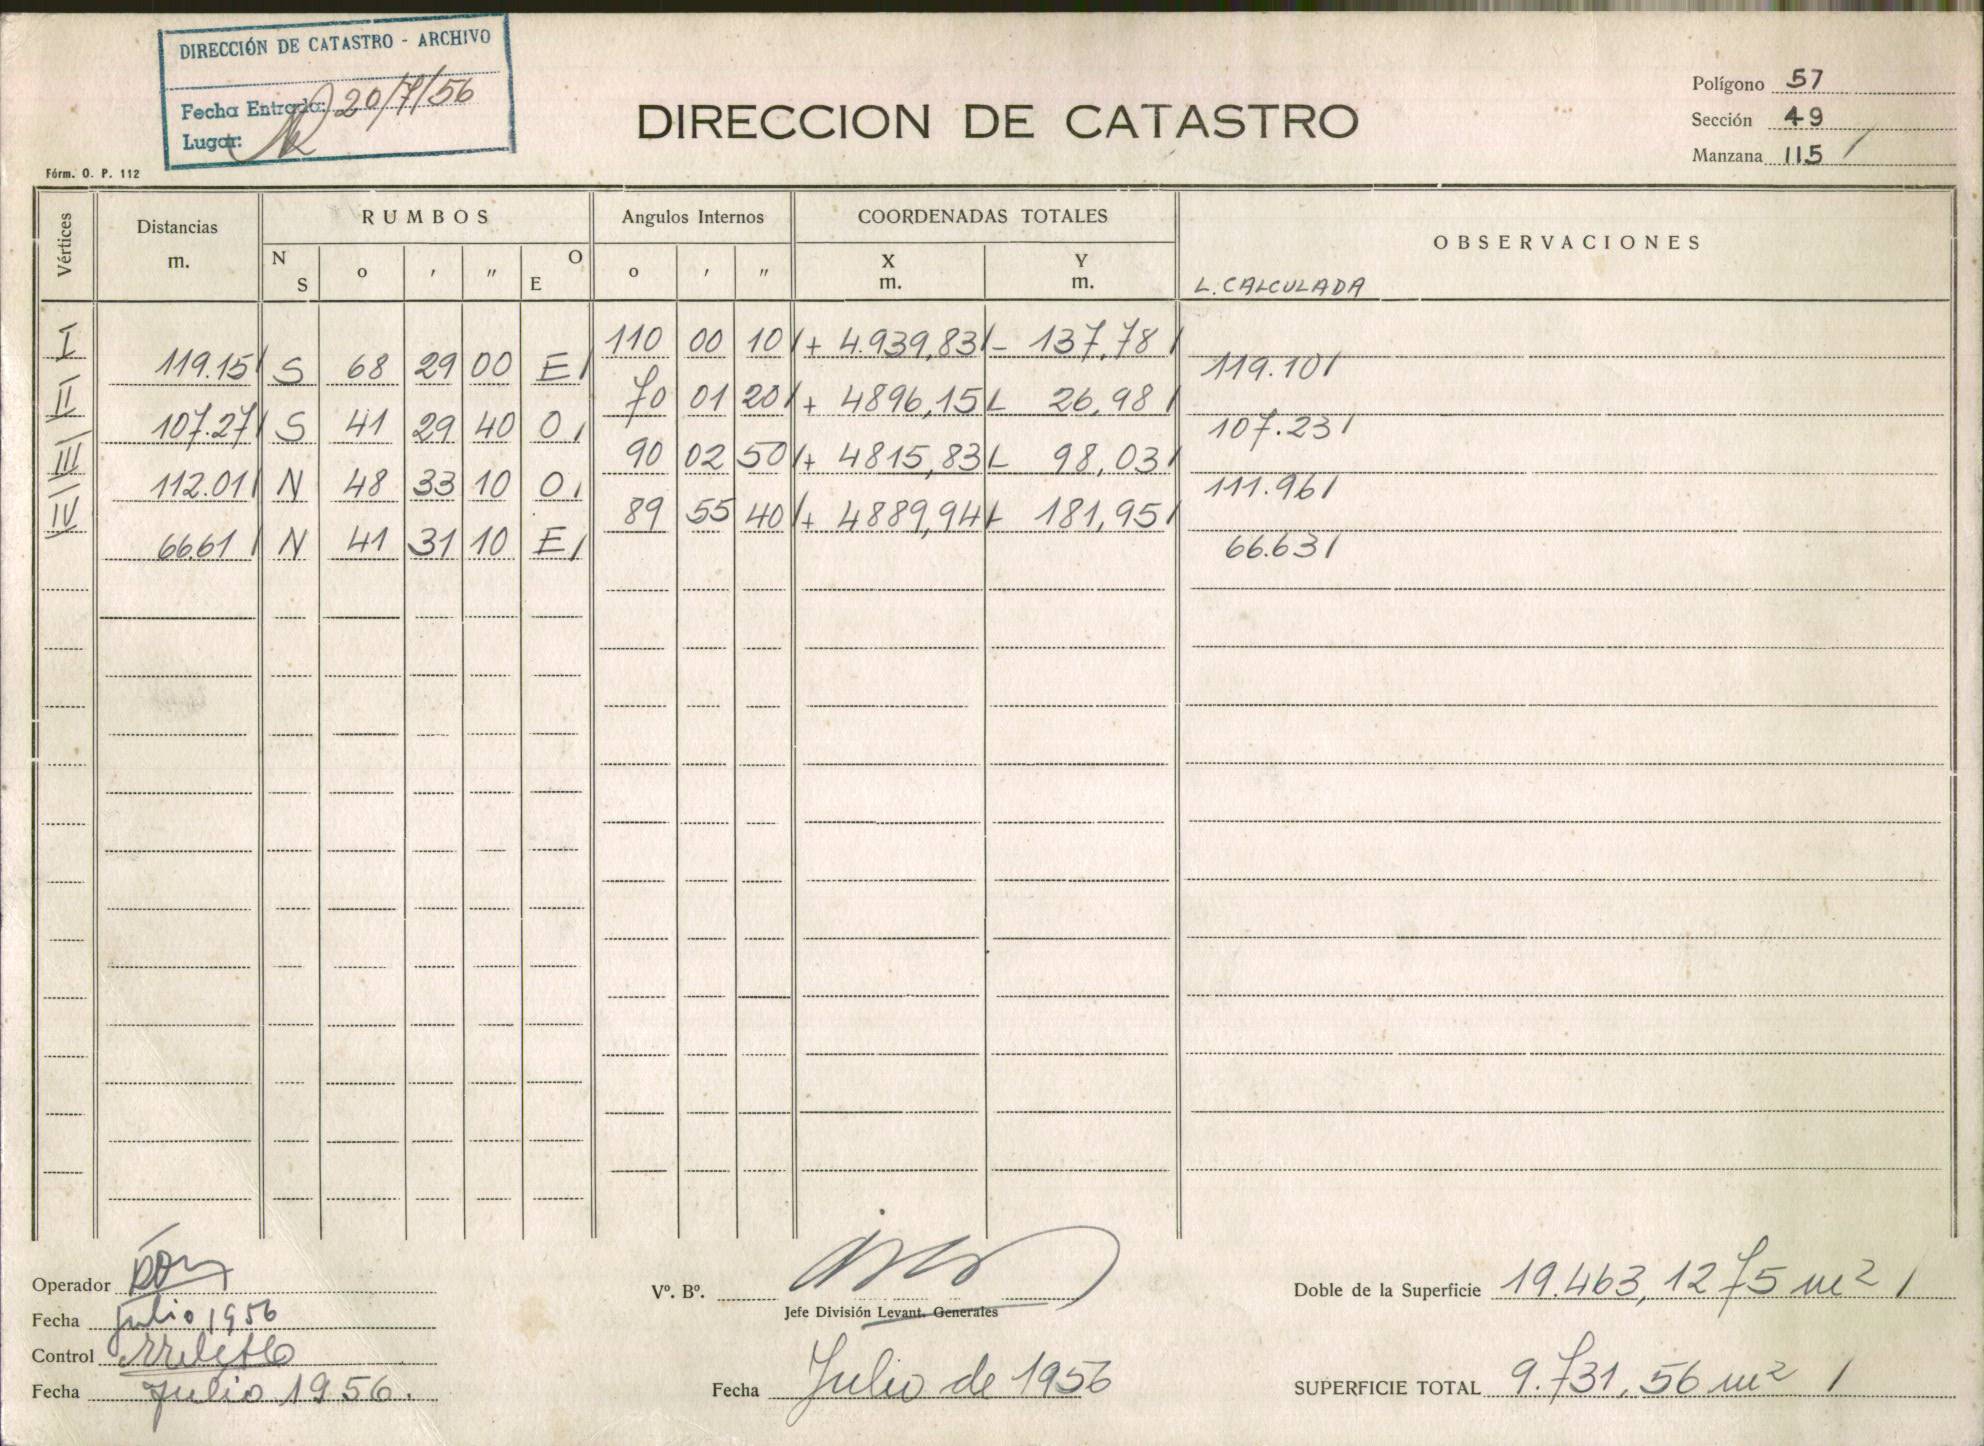 DIRECCIÓN DE CATASTRO - ARCHIVO
Fecha Entrada: 20/7/56
Lugar:
DIRECCION DE CATASTRO
Polígono 57
Sección 49
Manzana 115 /
Fórm. O. P. 112
Vértices Distancias m. RUMBOS Angulos Internos COORDENADAS TOTALES OBSERVACIONES
N S o ′ ″ O E o ′ ″ X m. Y m. L. CALCULADA
I 110 00 10 / + 4.939,83 / - 137,78 /
119.15 / S 68 29 00 E / 119.10 /
II 70 01 20 / + 4896,15 26,98 /
107.27 / S 41 29 40 O / 107.23 /
III 90 02 50 / + 4815,83 98,03 /
112.01 / N 48 33 10 O / 111.96 /
IV 89 55 40 / + 4889,94 181,95 /
66.61 / N 41 31 10 E / 66.63 /
Operador
Fecha Julio 1956
Control
Fecha Julio 1956.
Vº. Bº.
Jefe División Levant. Generales
Fecha Julio de 1956
Doble de la Superficie 19.463,1275 m2 /
SUPERFICIE TOTAL 9.731,56 m2 /